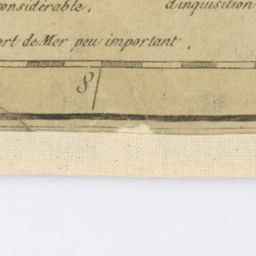 considérable,	d'inquisition
ort de Mer peu important.
8